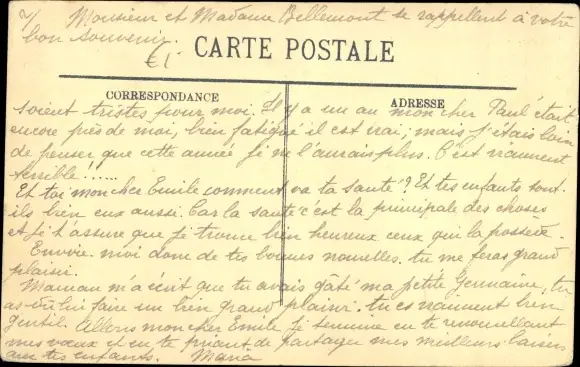 2/ Monsieur et Madame Bellemont se rappellent à votre
bon souvenir.
€1-
CARTE POSTALE
CORRESPONDANCE
ADRESSE
soient tristes pour moi. Il y a un an mon cher Paul était
encore près de moi, bien fatigué il est vrai, mais j'étais loin
de penser que cette année je ne l'aurais plus. C'est vraiment
terrible!......
Et toi mon cher Emile comment va ta santé? Et tes enfants sont-
ils bien eux aussi. Car la santé c'est la principale des choses
et je t'assure que je trouve bien heureux ceux qui la possède.
Envoie-moi donc de tes bonnes nouvelles. tu me feras grand
plaisir.
Maman m'a écrit que tu avais gâté ma petite Germaine, tu
as dû lui faire un bien grand plaisir. tu es vraiment bien
gentil. Allons mon cher Emile je termine en te renouvellant
mes vœux et en te priant de partager mes meilleurs baisers
avec tes enfants. Maria